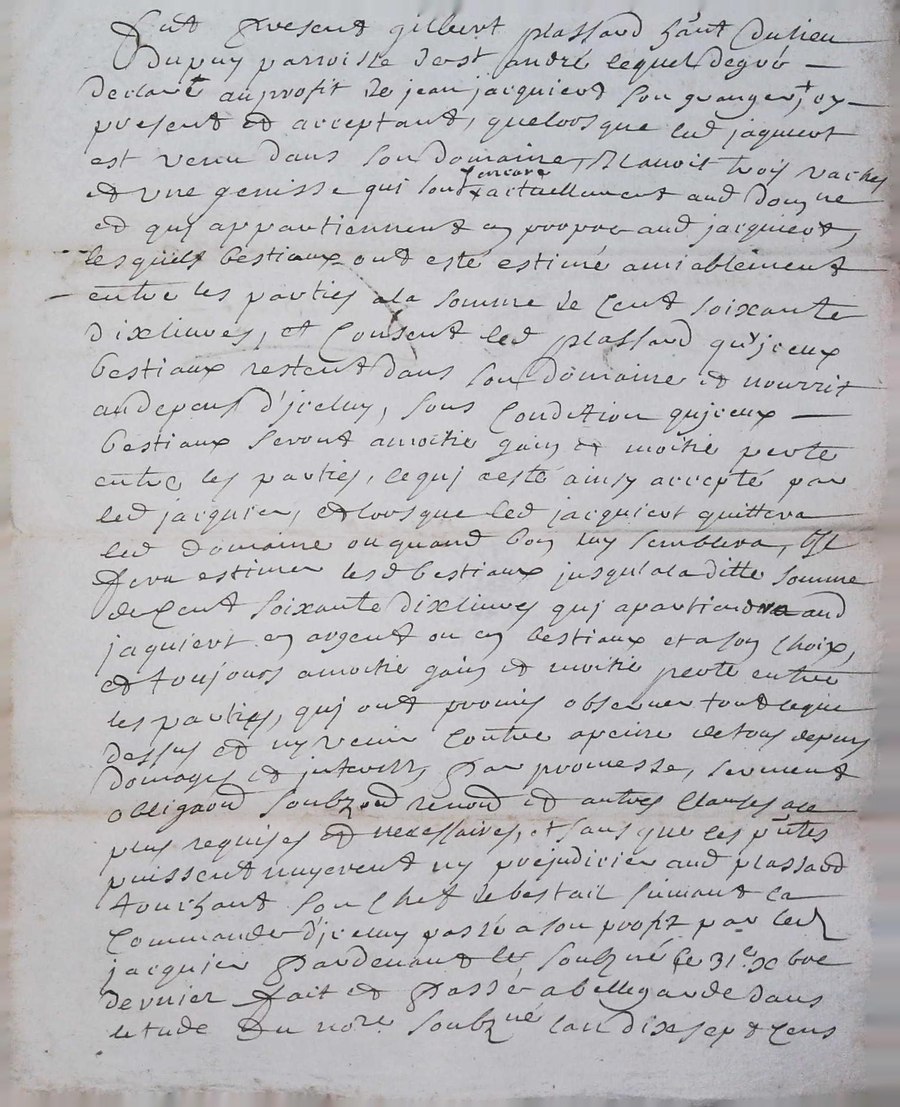 fut present gilbert plassard h̃ant du lieu
Dupuy parroisse de st andré lequel degré
declare au profit de jean jacquiert son granger † cy
present et acceptant, quelorsque led jaquiert
est venu dans son domaine, Il avoit trois vaches
et une genisse qui sont encore actuellement aud domne
et quj appartiennent en propre aud jacquiert,
lesquels bestiaux ont esté estimé amiablement
entre les parties a la somme de Cent soixante
dix livres, et Consent led plassard qu'jceux
bestiaux restent dans son domaine et nourrit
au depens d'jceluy, sous Condition qujceux
bestiaux seront a moitié gain et moitié perte
entre les parties, cequj a esté ainsy accepté par
led jacquier, et lorsque led jacquiert quittera
led domaine ou quand bon luy semblera, Il
fera estimer lesd bestiaux jusqu'a la ditte somme
de Cent soixante dix livres quj apartiendra aud
jaquiert en argent ou en bestiaux et a son choix,
et toujours a moitié gain et moitié perte entre
les parties, quj ont promis observer tout ceque
dessus et ny venir Contre a peine de tous depens
domages et jnterests, par promesse, serment
obligaõn soubz̃on renõn et autres Clauses
plus requises et necessaires, et sans que les p̃ntes
puissent nuyerent ny prejudicier aud plassard
touchant son Chef de bestail suivant la
Commande d'jceluy passé a son profit par led
jacquier pardevant le soubz̃né le 31e. xbre
dernier fait et passé a bellegarde dans
letude du nore. soubz̃né lan dix sept Cens